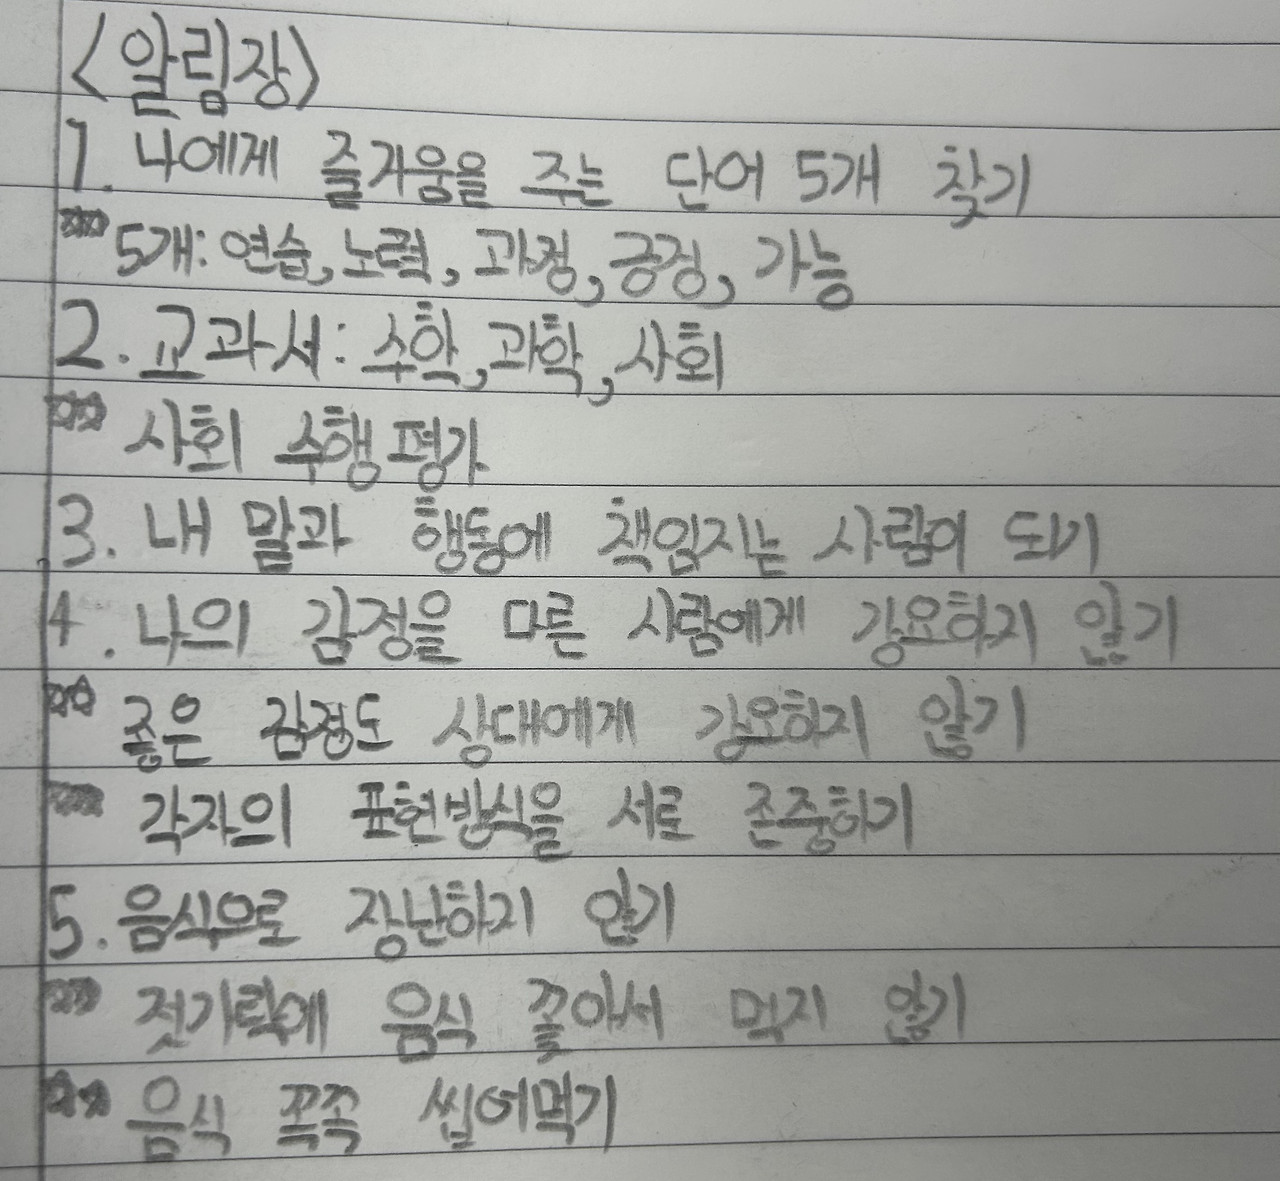 <알림장>
1. 나에게 즐거움을 주는 단어 5개 찾기
5개: 연습, 노력, 과정, 긍정, 가능
2. 교과서: 수학, 과학, 사회
사회 수행평가
3. 내 말과 행동에 책임지는 사람이 되기
4. 나의 감정을 다른 사람에게 강요하지 않기
좋은 감정도 상대에게 강요하지 않기
각자의 표현방식을 서로 존중하기
5. 음식으로 장난하지 않기
젓가락에 음식 꽂아서 먹지 않기
음식 꼭꼭 씹어먹기